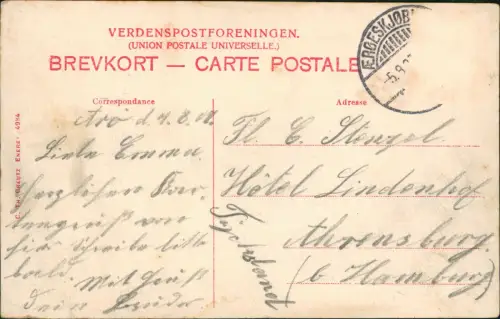 VERDENSPOSTFORENINGEN.
(UNION POSTALE UNIVERSELLE.)
BREVKORT — CARTE POSTALE
ÆRØESKJØB
5.8.
Correspondance
Adresse
Arö d. 4.8.08.
Liebe Emma.
Herzlichen Kar-
tengruß von
hier schreibe bitte
bald.
Mit Gruß
dein Bruder
Fl. C. Stenzel
Hôtel Lindenhof
Ahrensburg
(b Hamburg)
Tyskland